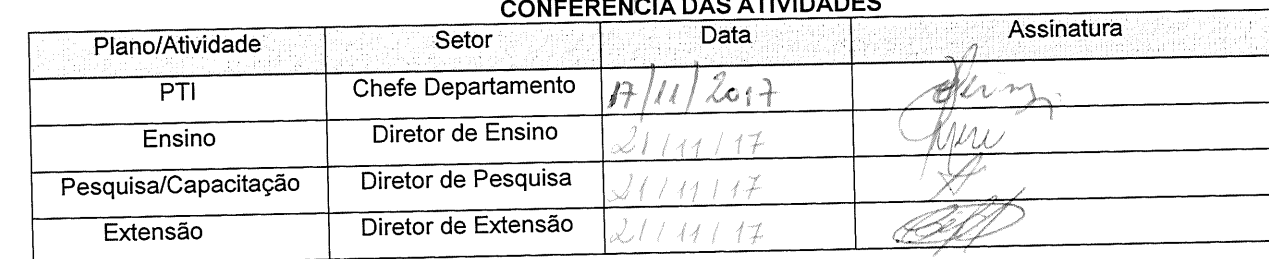 CONFERÊNCIA DAS ATIVIDADES
Plano/Atividade Setor Data Assinatura
PTI Chefe Departamento 17/11/2017
Ensino Diretor de Ensino 21/11/17
Pesquisa/Capacitação Diretor de Pesquisa 21/11/17
Extensão Diretor de Extensão 21/11/17